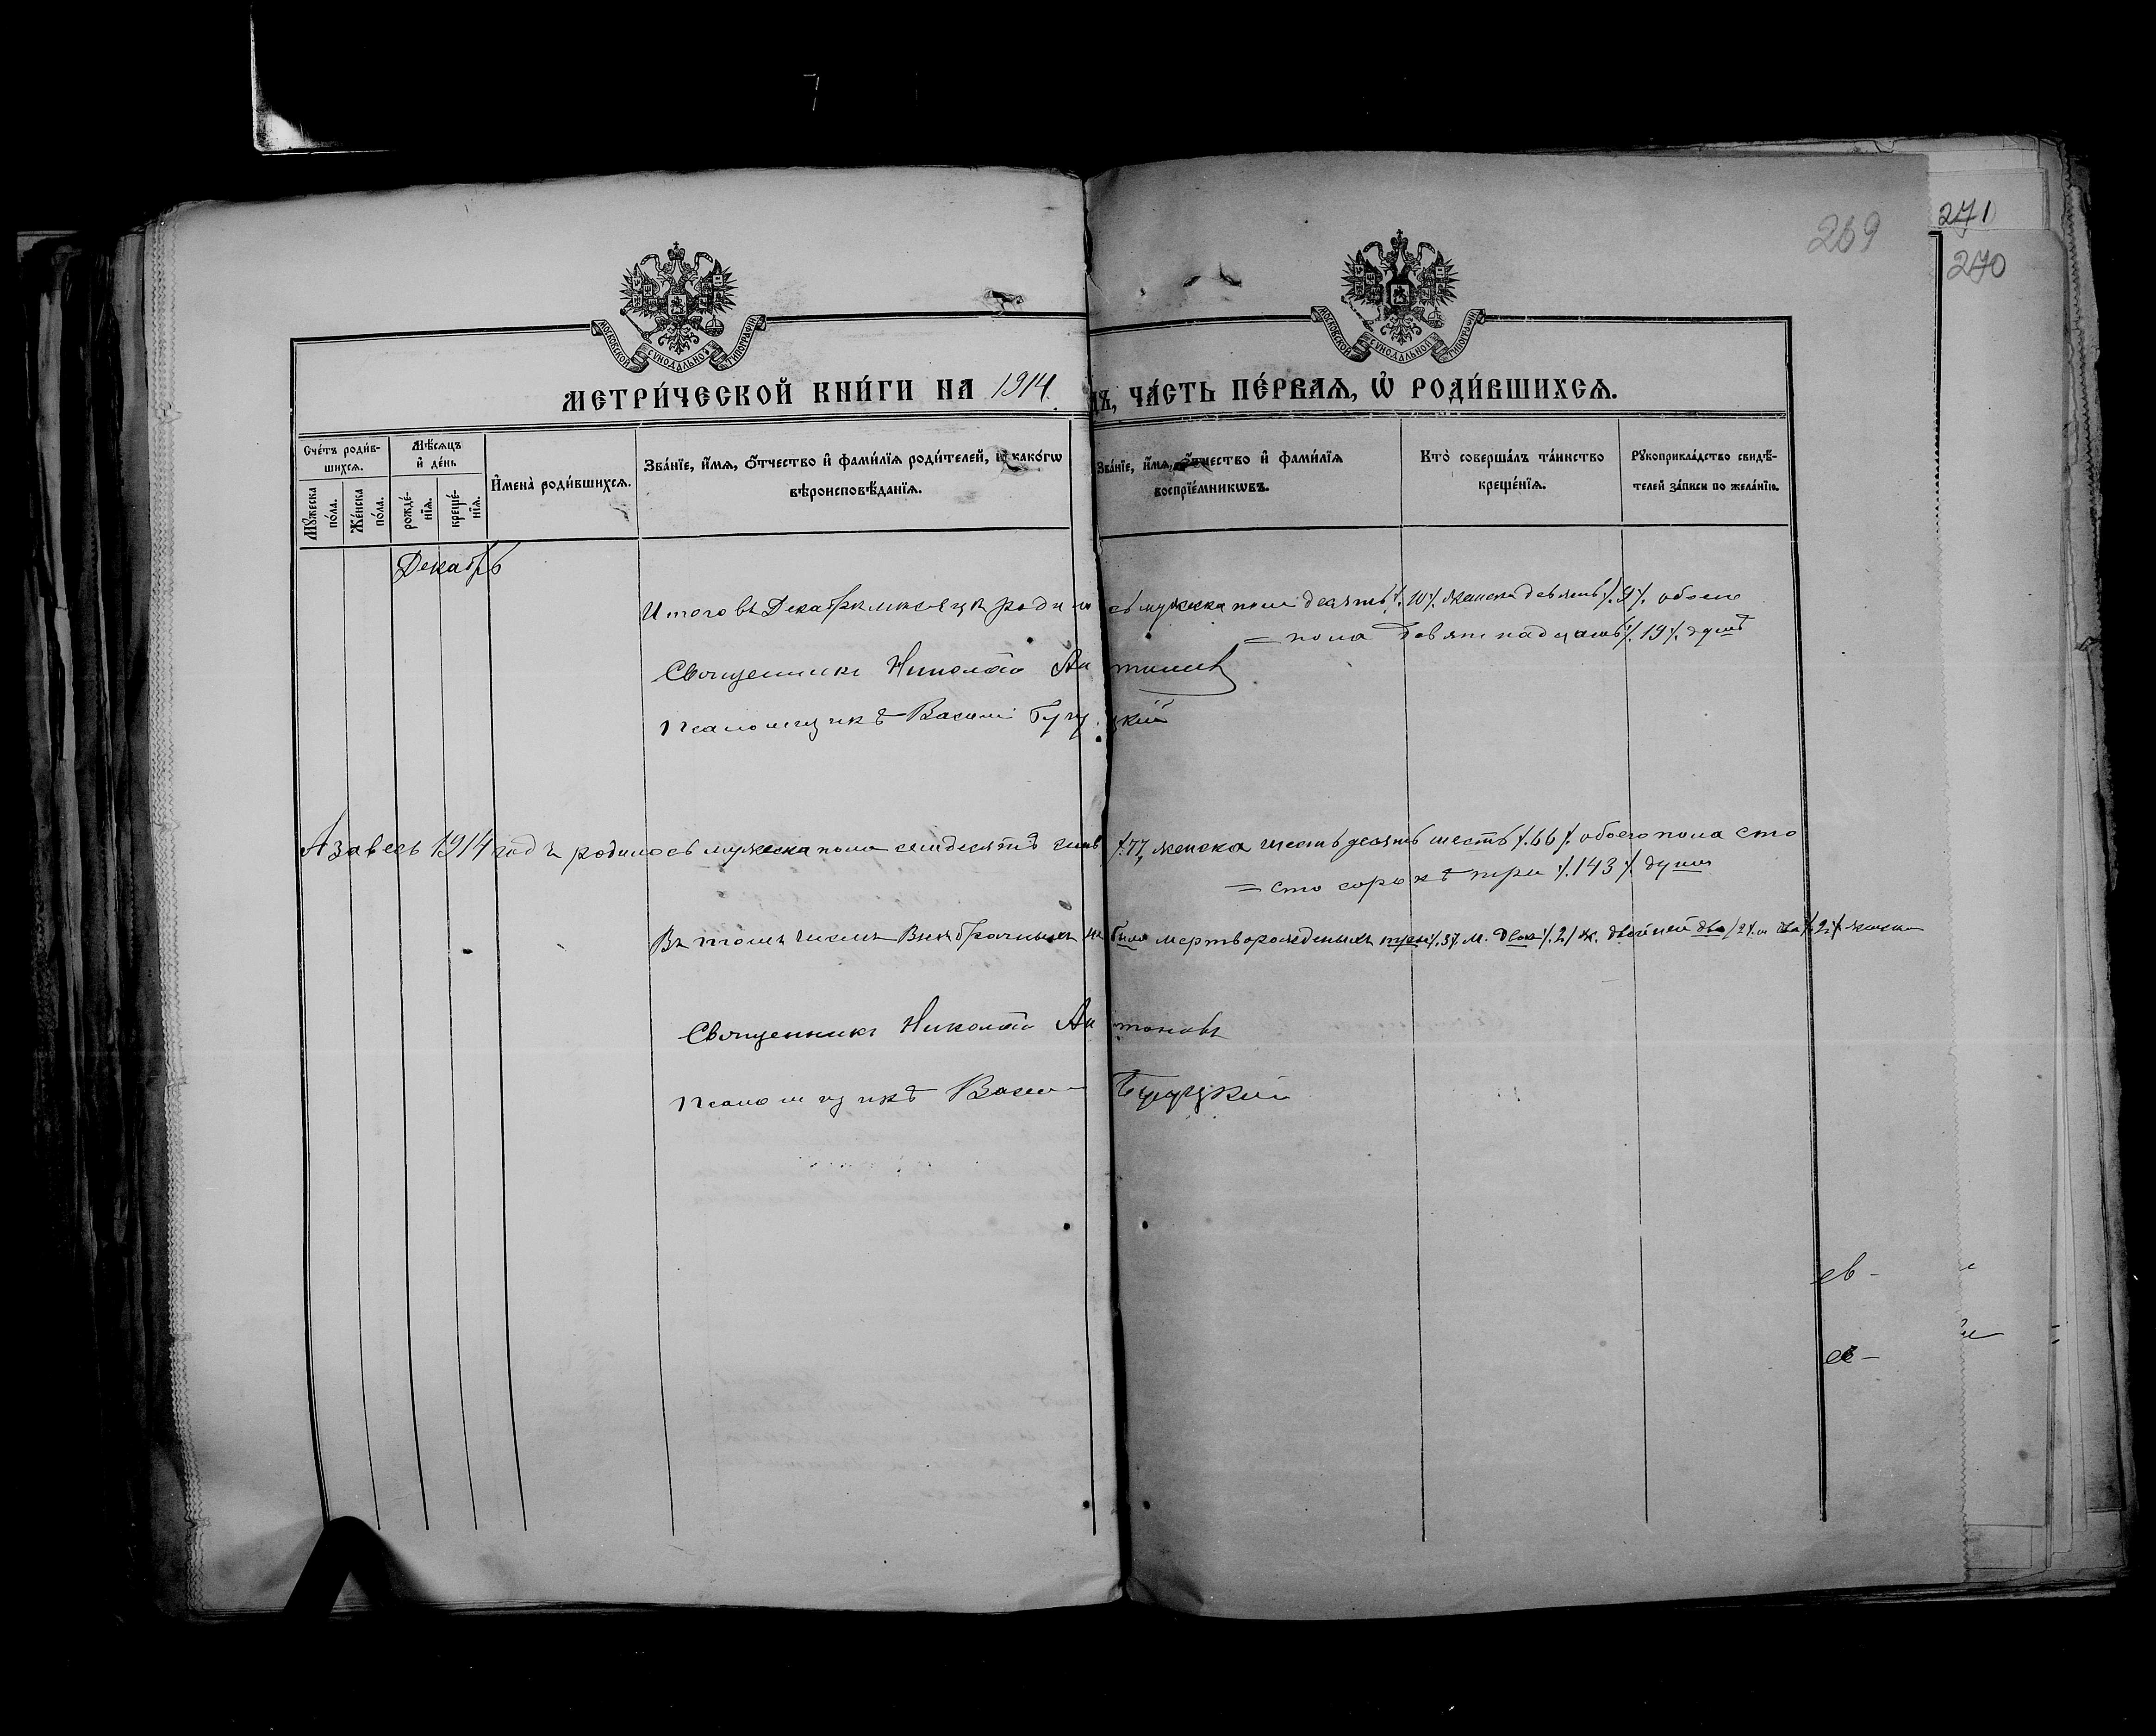 269
271
270
МОСКОВСКОЙ СУНОДАЛЬНОЙ ТИПОГРАФІИ
МОСКОВСКОЙ СУНОДАЛЬНОЙ ТИПОГРАФІИ
МЕТРИ́ЧЕСКОЙ КНИ́ГИ НА 1914 ДЪ, ЧА́СТЬ ПЕ́РВАЯ, Ѡ҆ РОДИ́ВШИХСЯ.
Сче́тъ роди́в-
шихся.
Мѣ́сяцъ
и҆ де́нь
Мꙋ́жеска по́ла.
Же́нска по́ла.
рожде́-
нїя.
креще́-
нїя.
И҆мена̀ роди́вшихся.
Зва́нїе, и҆́мя, ѻ҆́тчество и҆ фами́лїя роди́телей, и҆ како́гѡ
вѣроисповѣ́данїя.
Зва́нїе, и҆́мя, ѻ҆́тчество и҆ фами́лїя
воспрїе́мникѡвъ.
Кто̀ соверша́лъ та́инство
креще́нїя.
Рꙋкоприкла́дство свидѣ́-
телей за́писи по жела́нїю.
Декабрь
Итого въ Декабрѣ мѣсяцѣ родилось мужска пола десять /.10/. женска девять /.9/. обоего
= пола девятнадцать /.19/. душъ
Священникъ Николай Антоновъ
Псаломщикъ Василій
А за весь 1914 годъ родилось мужеска пола семдесятъ семь /.77, женска шестьдесятъ шесть /.66/. обоего пола сто
= сто сорокъ три /.143/. душъ
Въ томъ числѣ Внѣбрачныхъ не было мертворожденыхъ трое /.3/. м. двое /.2/ ж. двойней два /2/. м два /.2/. женска
Священникъ Николай Антоновъ
Псаломщикъ Васил
ев-
ее-